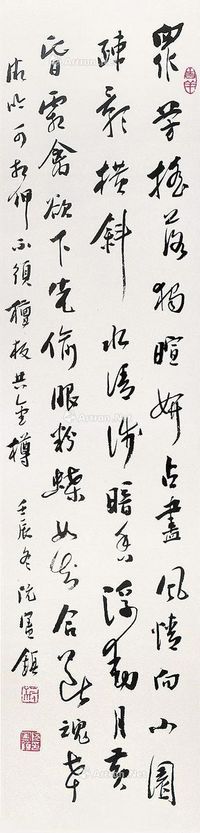 眾芳搖落獨暄妍占盡風情向小園
疎影橫斜水清淺暗香浮動月黃
昏霜禽欲下先偷眼粉蝶如知合斷魂幸
微吟可相狎不須檀板共金樽 壬辰冬